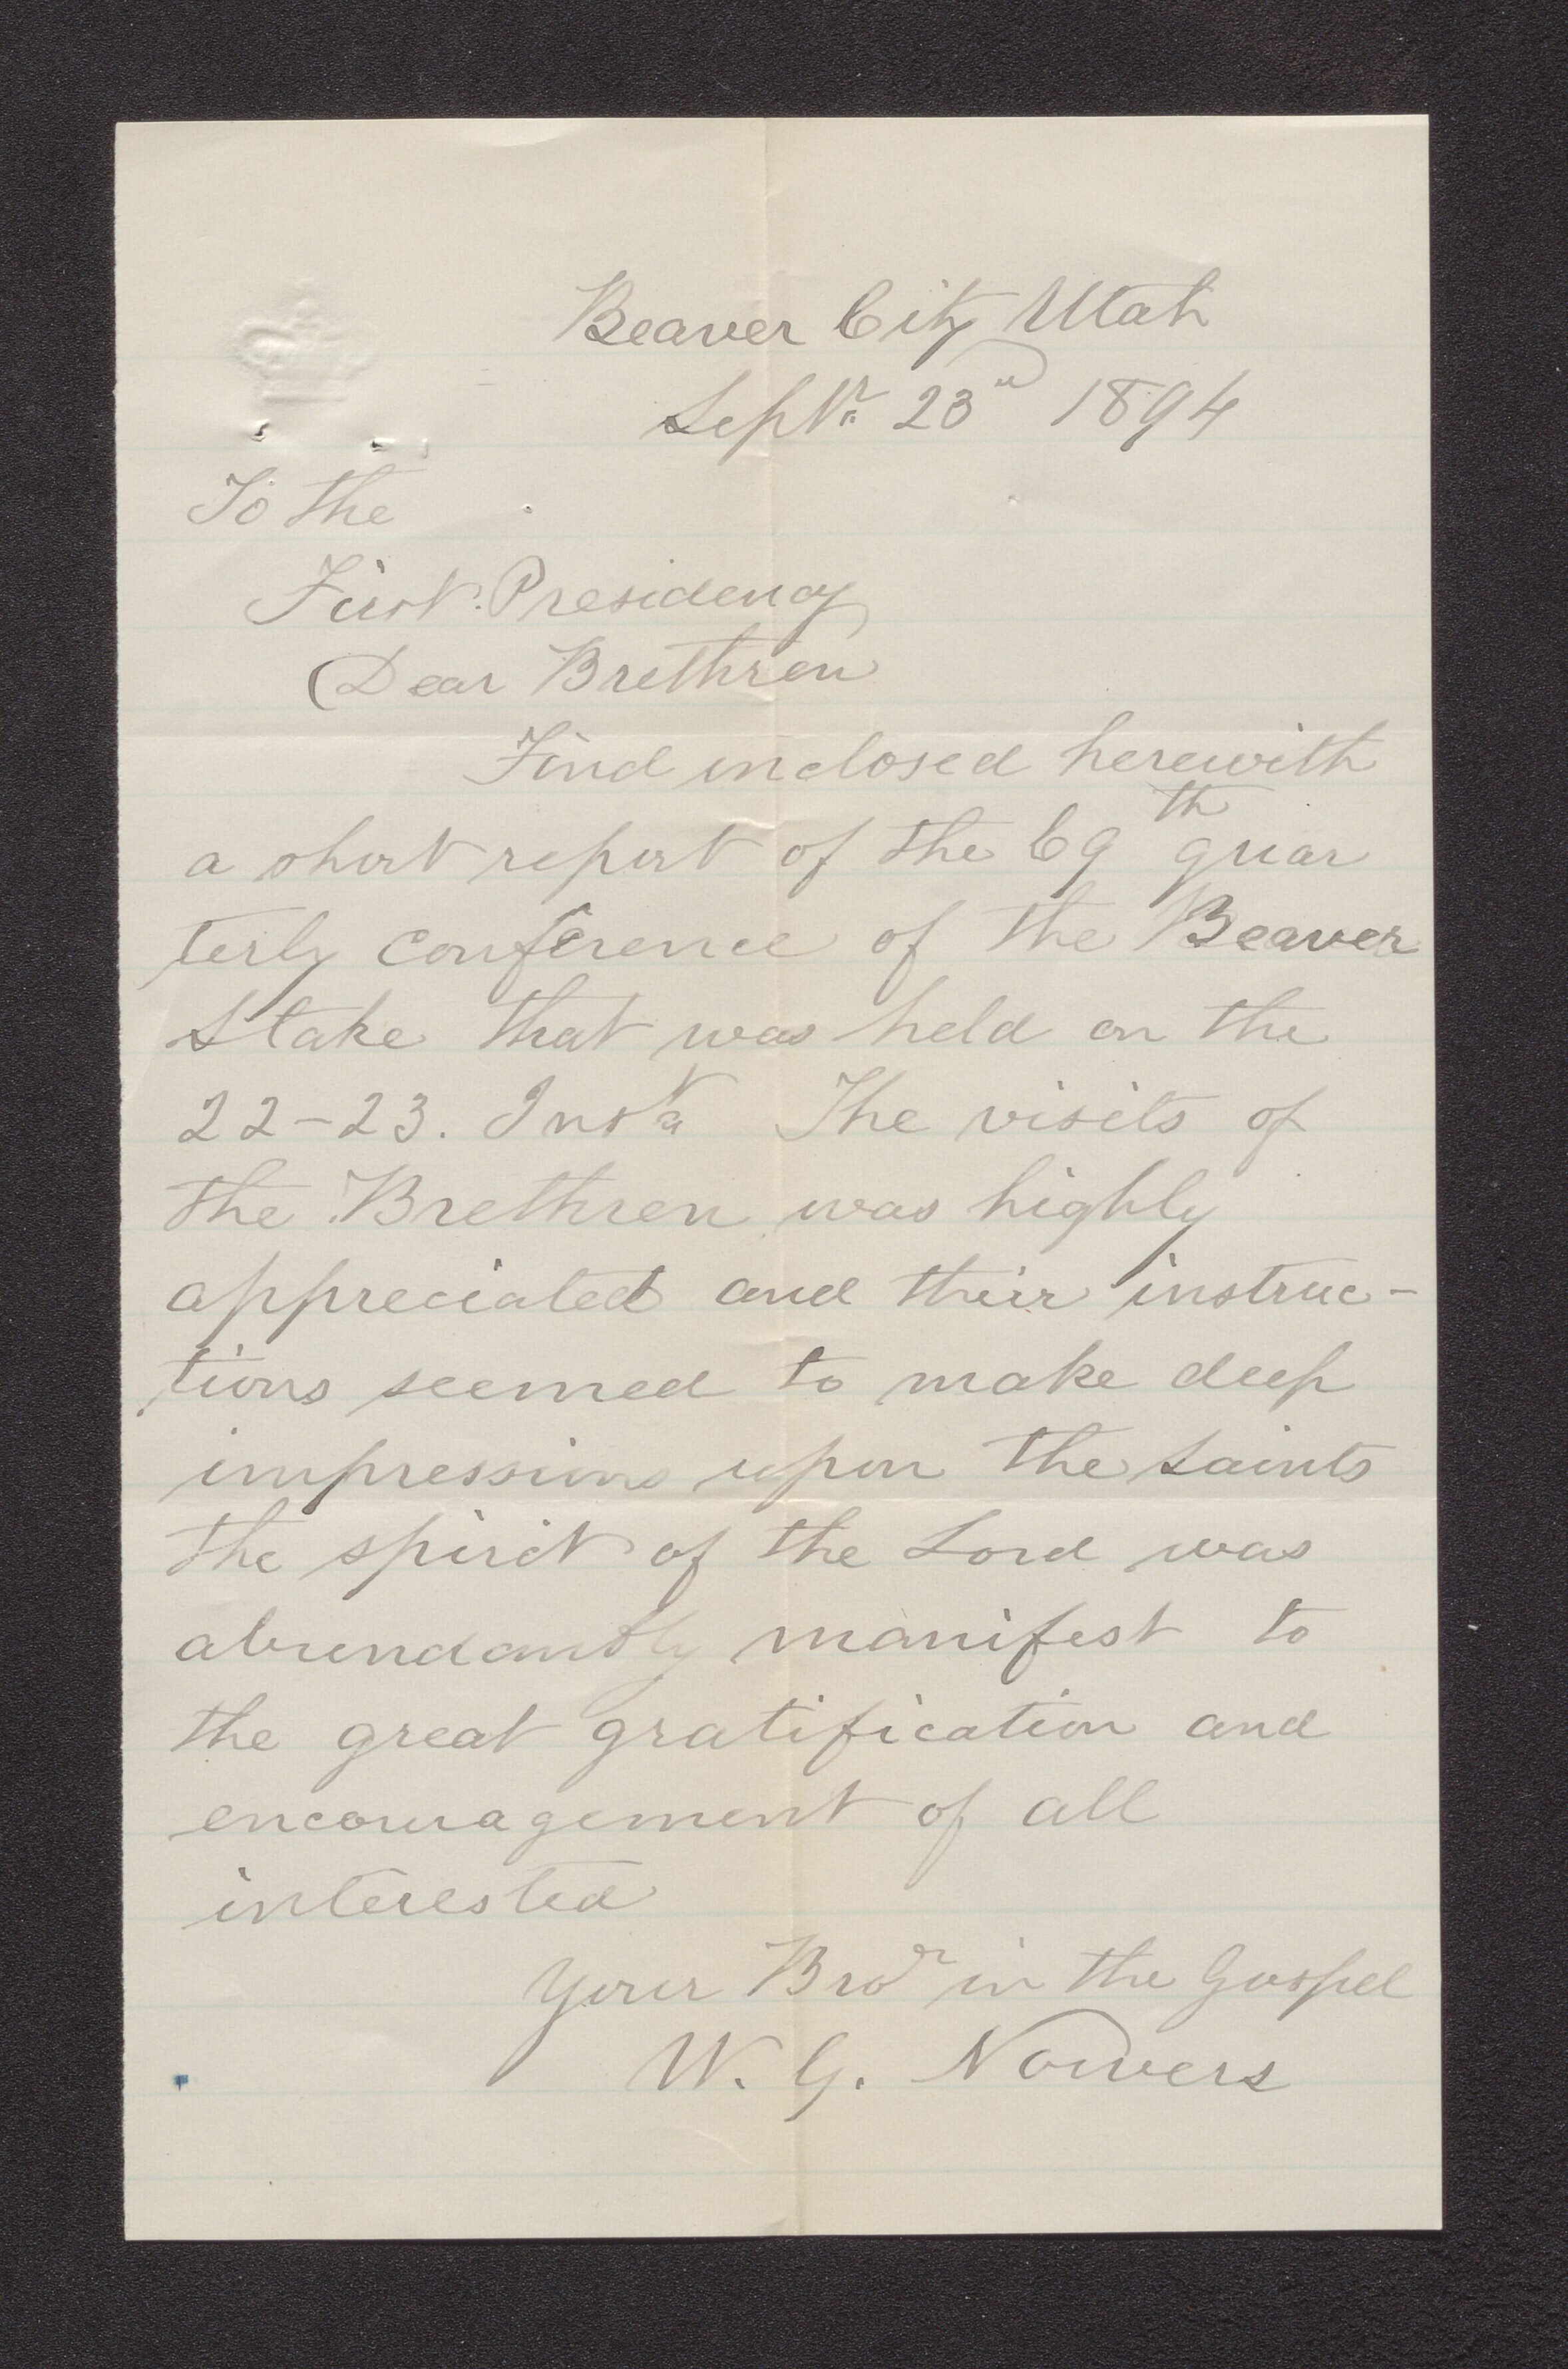 Beaver City Utah
Sept. 23rd 1894
To the
First Presidency
Dear Brethren
Find inclosed herewith
a short report of the 69th quar
terly conference of the Beaver
Stake that was held on the
22-23. Inst. The visits of
the Brethren was highly
appreciated and their instruc-
tions seemed to make deep
impressions upon the Saints
the spirit of the Lord was
abundantly manifest to
the great gratification and
encouragement of all
interested
Your Bror in the Gospel
W. G. Nowers